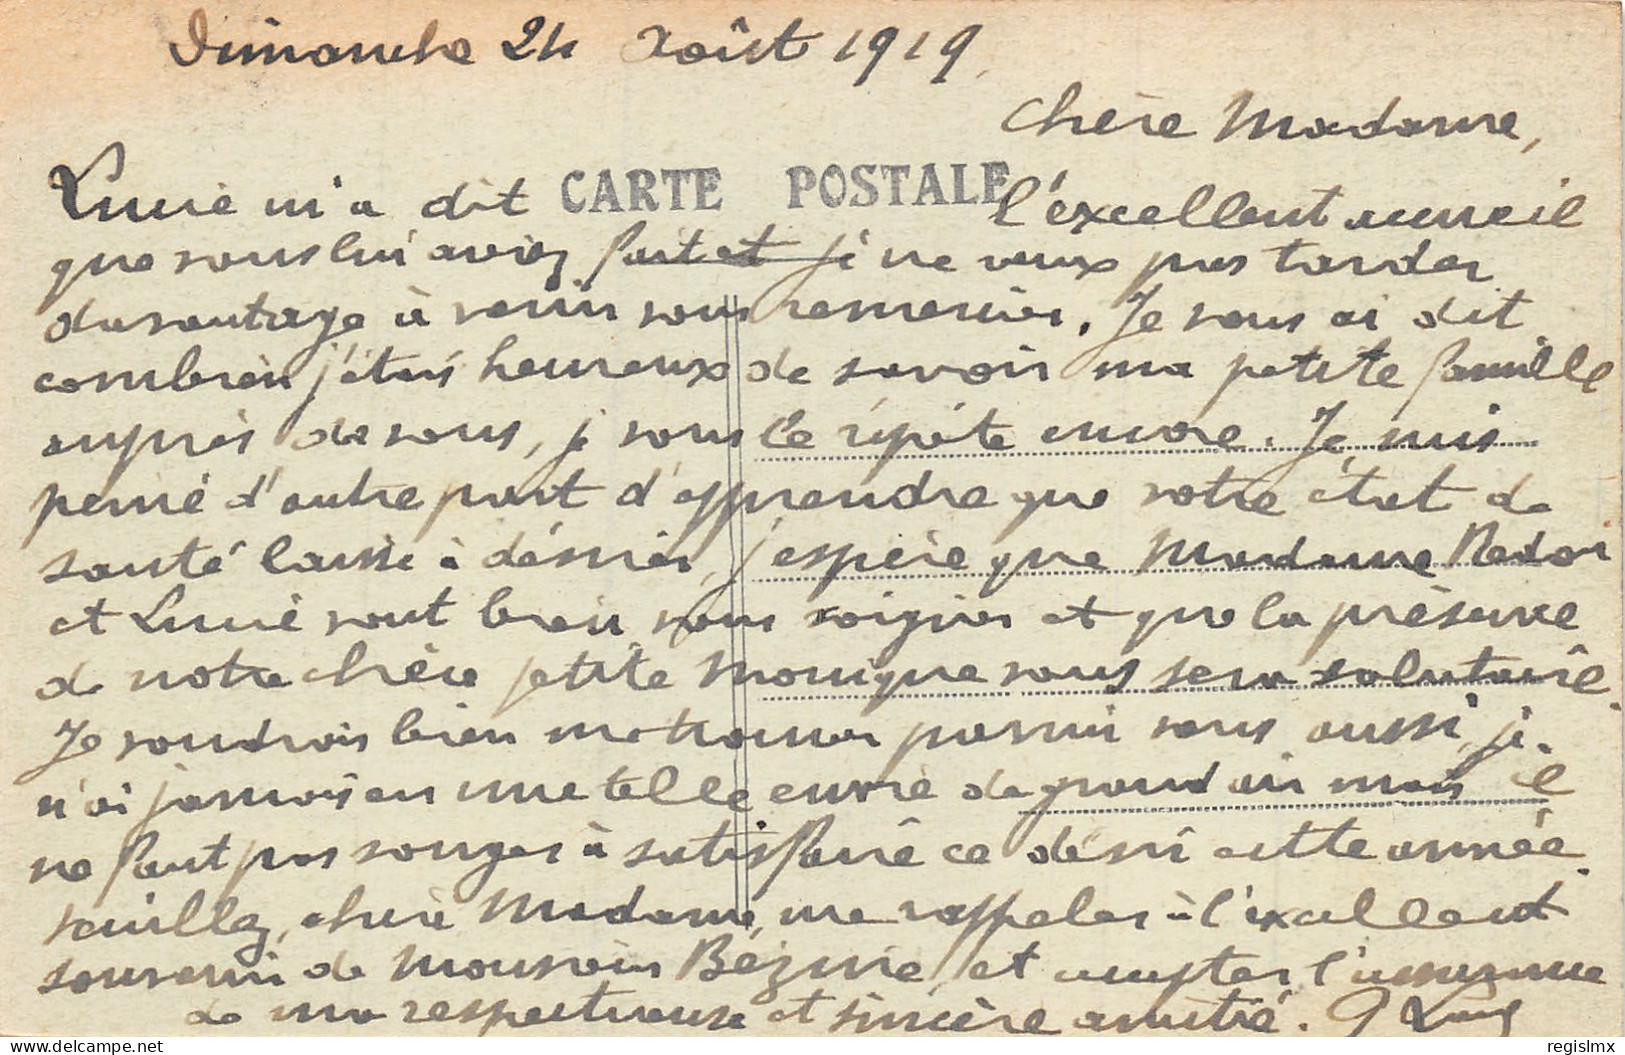 Dimanche 24 Août 1919.
Chère Madame,
CARTE POSTALE
Lucie m'a dit l'excellent accueil
que vous lui aviez fait et je ne veux pas tarder
davantage à venir vous remercier. Je vous ai dit
combien j'étais heureux de savoir ma petite famille
auprès de vous, je vous le répète encore. Je suis
peiné d'autre part d'apprendre que votre état de
santé laisse à désirer, j'espère que Madame
et Lucie vont bien vous soigner et que la présence
de notre chère petite Monique vous sera salutaire.
Je voudrais bien me trouver parmi vous aussi, je
n'ai jamais eu une telle envie de grand air mais il
ne faut pas songer à satisfaire ce désir cette année.
Veuillez, chère Madame, me rappeler à l'excellent
souvenir de Monsieur et accepter l'assurance
de ma respectueuse et sincère amitié.
delcampe.net
regislmx